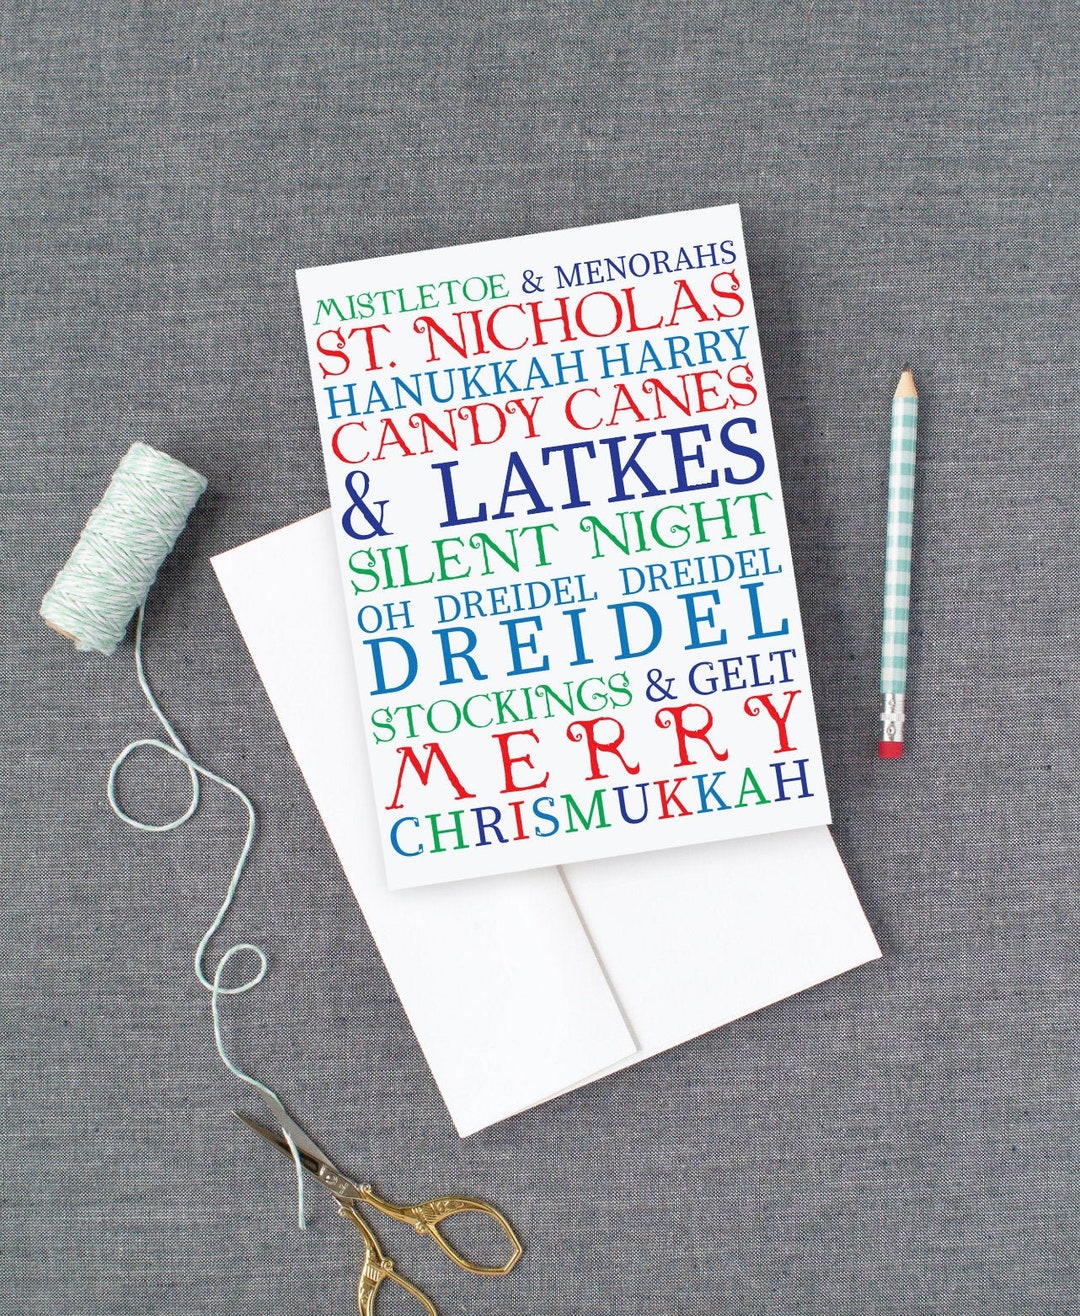 MISTLETOE & MENORAHS
ST. NICHOLAS
HANUKKAH HARRY
CANDY CANES
& LATKES
SILENT NIGHT
OH DREIDEL DREIDEL
DREIDEL
STOCKINGS & GELT
MERRY
CHRISMUKKAH